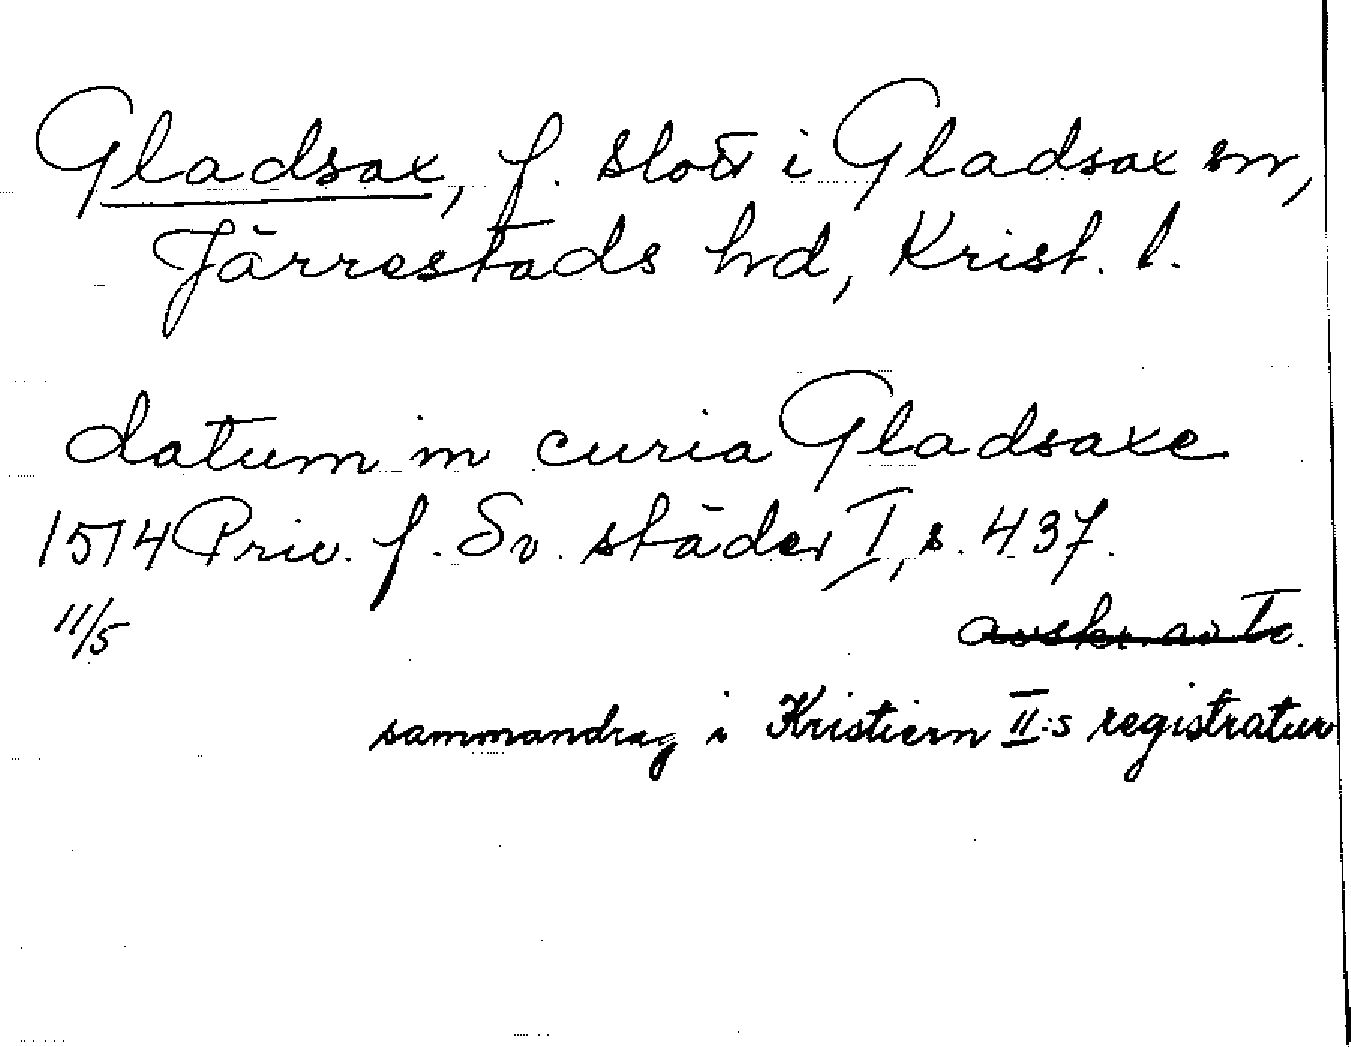 Gladsax, f. slott i Gladsax sn,
Järrestads hd, Krist. l.
datum in curia Gladsaxe
1514 Priv. f. Sv. städer I, s. 437.
11/5 avskr. av
sammandrag i Kristiern II:s registratur